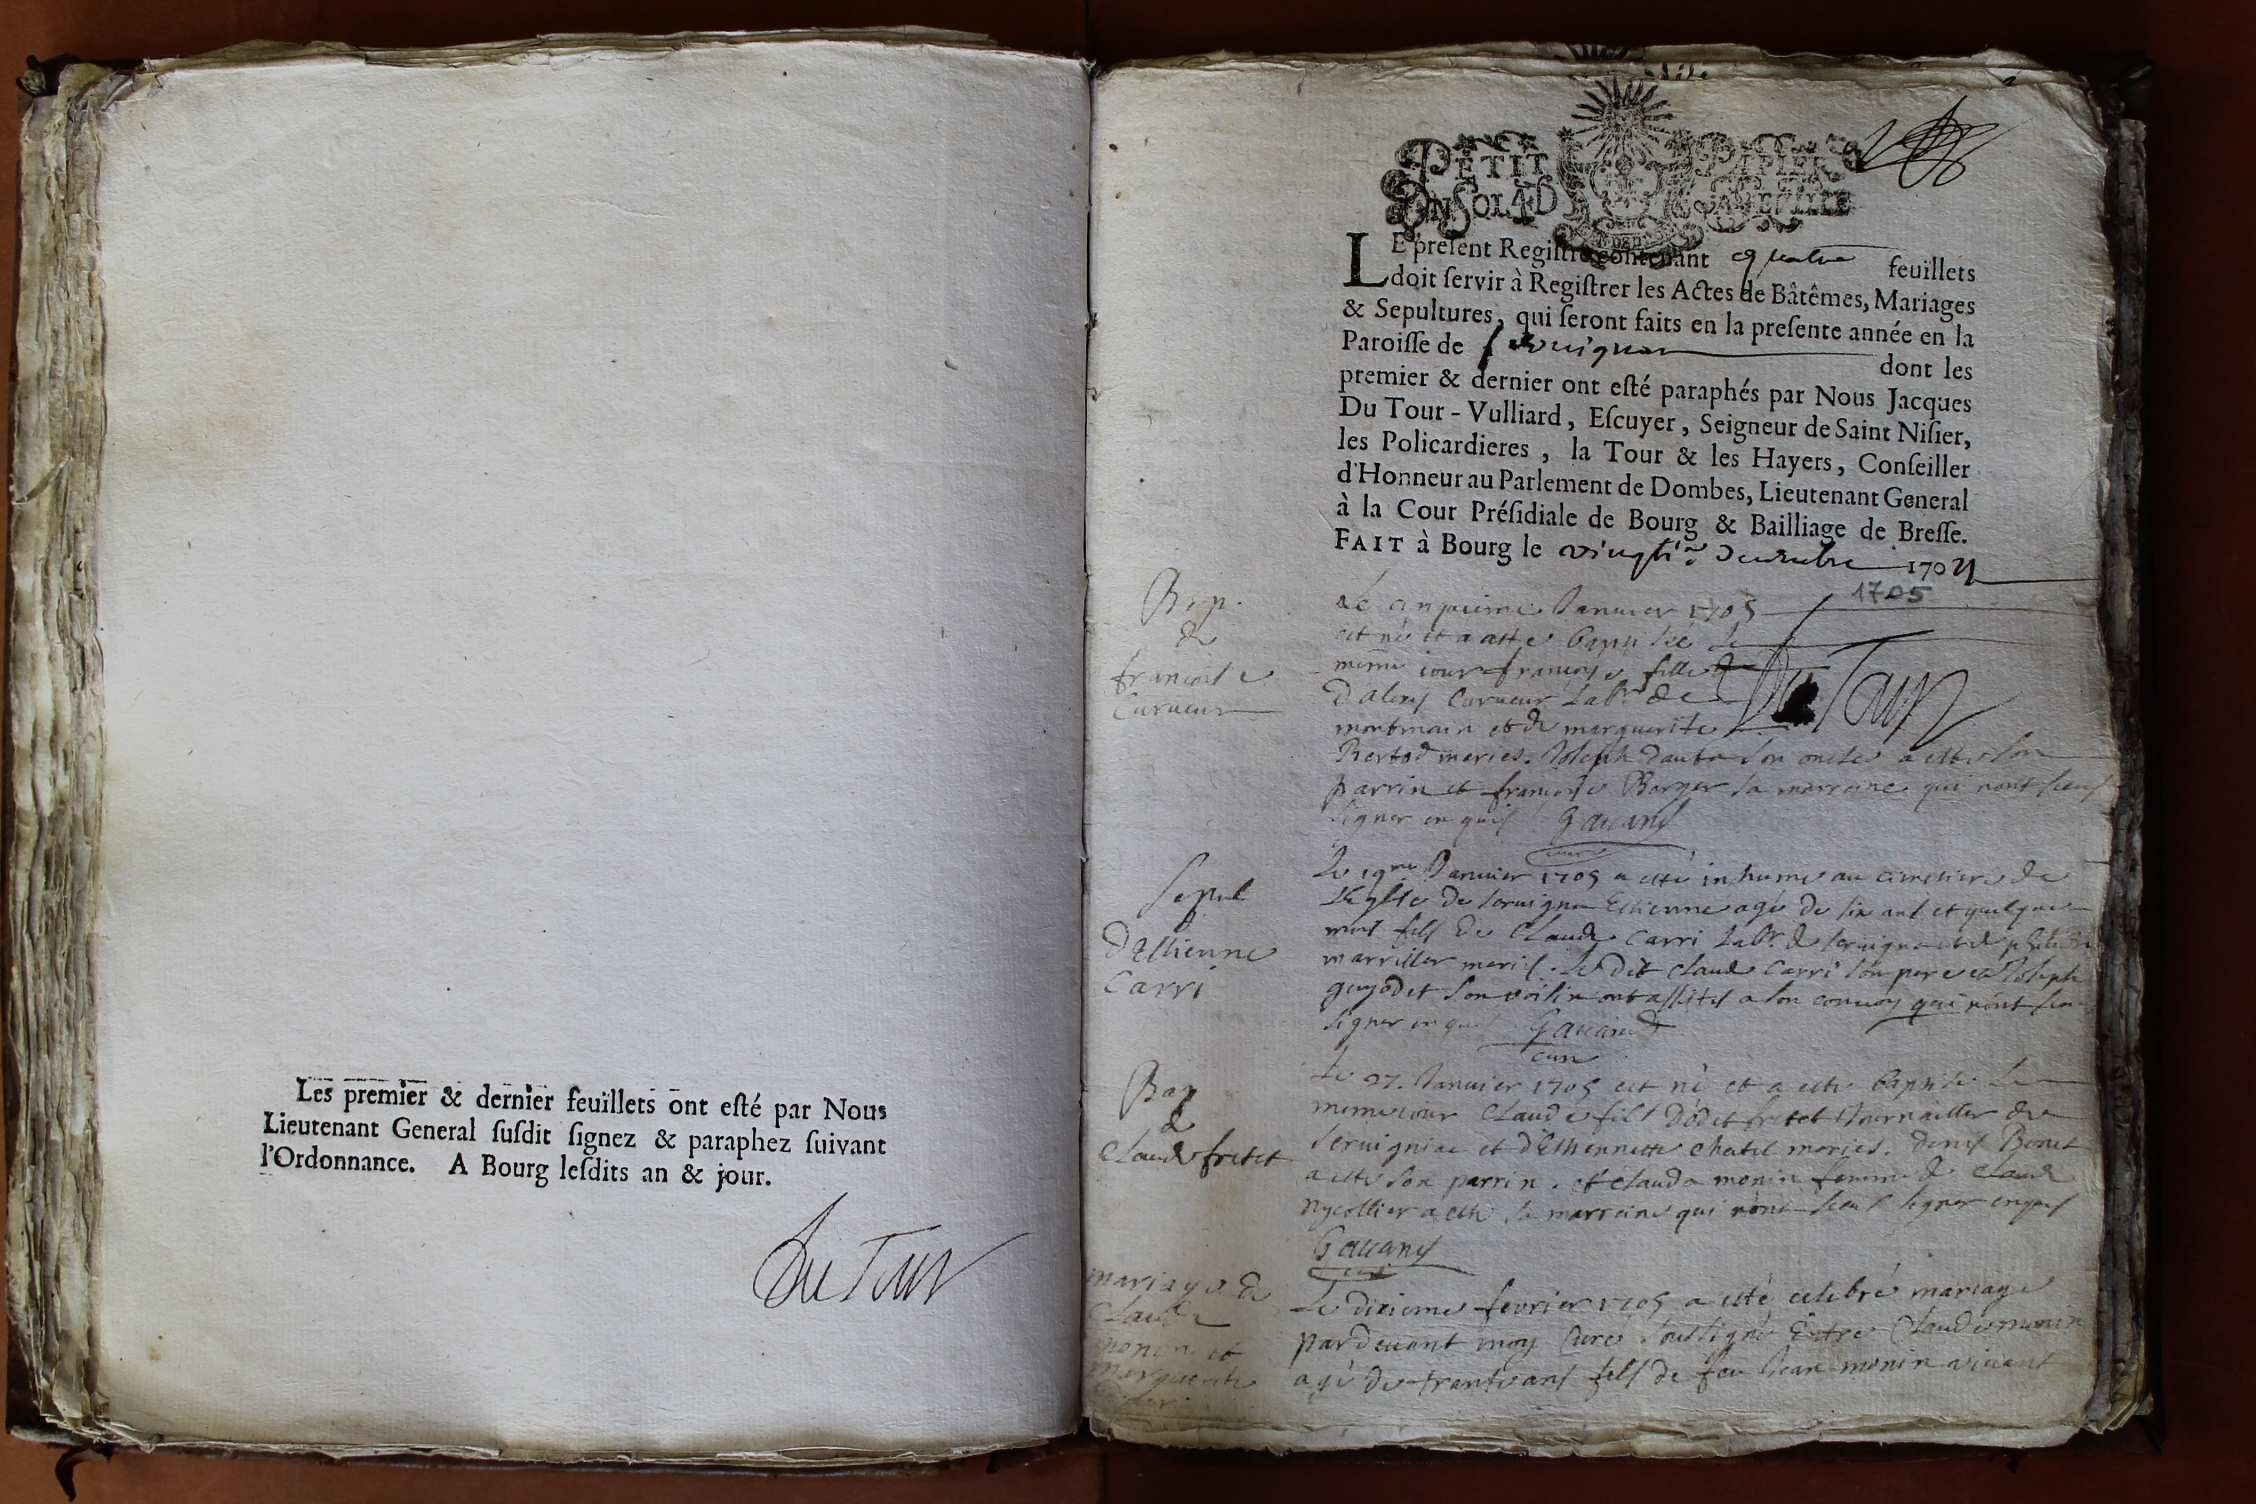 Les premier & dernier feuillets ont esté par Nous
Lieutenant General susdit signez & paraphez suivant
l'Ordonnance. A Bourg lesdits an & jour.
Du Tour
PETIT PAPIER
UN SOL 4 D LA FEUILLE
LE present Registre contenant quatre feuillets
doit servir à Registrer les Actes de Bâtêmes, Mariages
& Sepultures, qui seront faits en la presente année en la
Paroisse de Servignat dont les
premier & dernier ont esté paraphés par Nous Jacques
Du Tour-Vulliard, Escuyer, Seigneur de Saint Nisier,
les Policardieres, la Tour & les Hayers, Conseiller
d'Honneur au Parlement de Dombes, Lieutenant General
à la Cour Présidiale de Bourg & Bailliage de Bresse.
FAIT à Bourg le vingtie decembre 1704
1705
Bap.
de
francoise
Carueur
Le cinquieme Januier 1705
est né et a esté baptisée le
meme iour françoise fille
D'alexis Carueur Lab.r de
montmain et de marguerite
Du Tour
mariés. Joseph son oncle a esté son
parrin et françoise Borger sa marraine qui n'ont sceus
signer enquis Gauand
curé
Sepul
D'Estienne
Carri
Le 19me Januier 1705 a esté inhumé au cimetiere de
L'Eglise de seruigna Estienne agé de six ans et quelque
mois fils de Claude Carri Labr. de seruigna et de
mariés. Le dit Claude Carri son pere et Joseph
guyodet son voisin ont assistés a son conuoy qui n'ont sceu
signer enquis Gauand
curé
Bap
de
Claude fretet
Le 27. Januier 1705 est né et a esté baptisé le
meme iour Claude fils D'odet fretet Journallier de
seruignia et d'Ethiennette Chatel mariés. Denis Benet
a esté son parrin. et Clauda monin femme de Claude
nycollier a esté sa marraine qui n'ont sceus signer enquis
Gauand
curé
mariage de
Claude
monin et
marguerite
Le dixieme feurier 1705 a esté celebré mariage
pardeuant moy Curé soussigné Entre Claude monin
agé de trente ans fils de feu Jean monin viuant